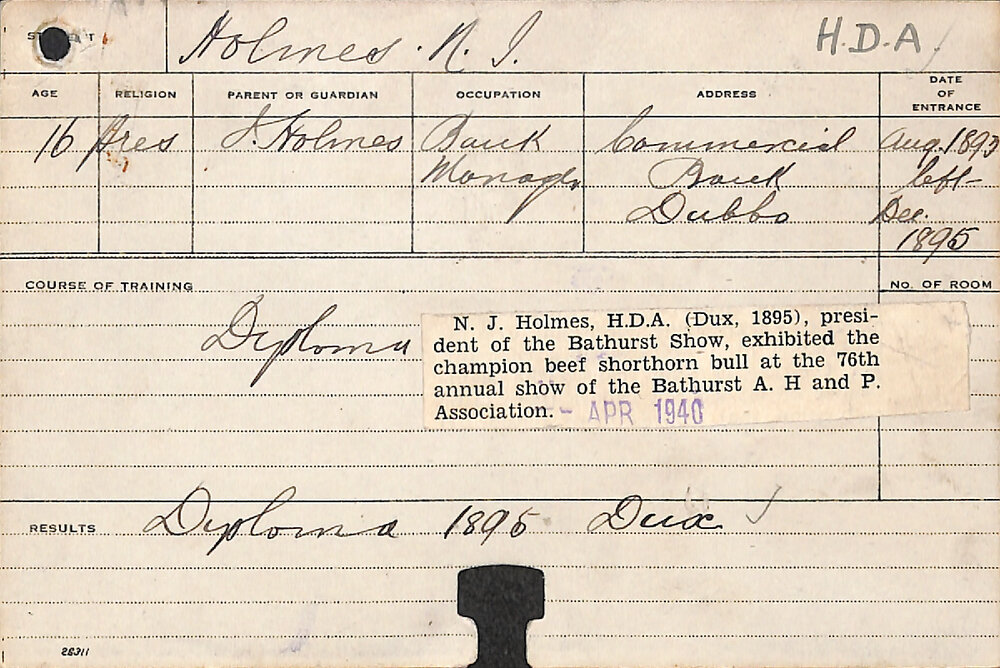 Holmes. N. J. H.D.A.
AGE RELIGION PARENT OR GUARDIAN OCCUPATION ADDRESS DATE OF ENTRANCE
16 Pres J. Holmes Bank Manager Commercial Bank Dubbo Aug. 1893
left
Dec.
1895
COURSE OF TRAINING
NO. OF ROOM
Diploma
N. J. Holmes, H.D.A. (Dux, 1895), presi-
dent of the Bathurst Show, exhibited the
champion beef shorthorn bull at the 76th
annual show of the Bathurst A. H and P.
Association. - APR 1940
RESULTS Diploma 1895 Dux
28311